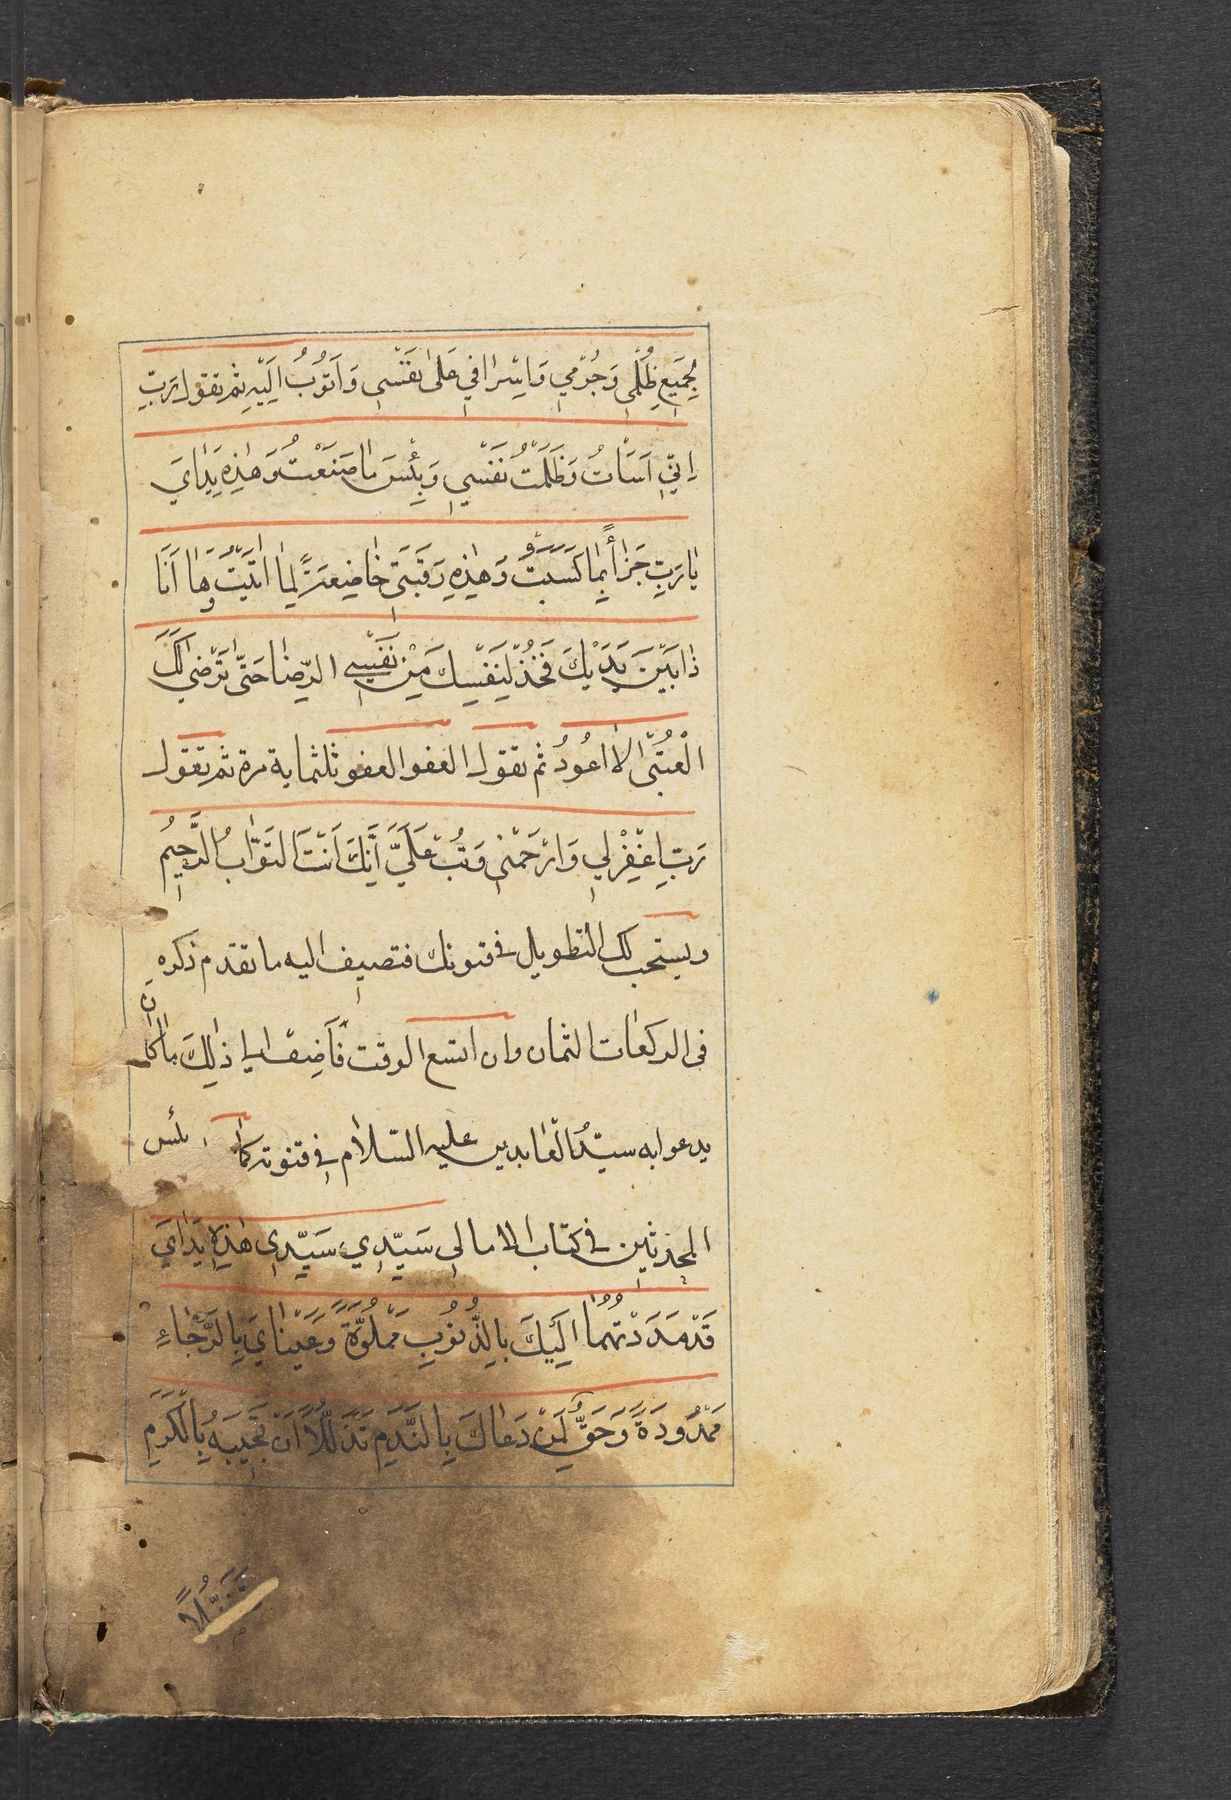 لِجَمِيعِ ظُلْمِي وَجُرْمِي وَاِسْرَافِي عَلىٰ نَفْسِي وَاَتُوبُ اِلَيْهِ ثم تقول رَبِّ
اِنّي اَسَأْتُ وَظَلَمْتُ نَفْسِي وَبِئْسَ مٰا صَنَعْتُ وَهٰذِهِ يَدٰايَ
يٰا رَبِّ جَزٰاءً بِمٰا كَسَبَتْ وَهٰذِهِ رَقَبَتي خٰاضِعَةً لِمٰا اَتَيْتُ وَهٰا اَنَا
ذٰا بَيْنَ يَدَيْكَ فَخُذْ لِنَفْسِكَ مِنْ نَفْسِي الرِّضٰا حَتّىٰ تَرْضىٰ لَكَ
الْعُتْبىٰ لاٰ اَعُودُ ثم تقول العفو العفو ثلثماية مرة ثم تقول
رَبِّ اغْفِرْلِي وَارْحَمْنِي وَتُبْ عَلَيَّ اِنَّكَ اَنْتَ التَّوّٰابُ الرَّحِيمُ
ويستحب لك التطويل في قنوتك فتضيف اليه ما تقدم ذكره
في الركعات الثمان وان اتسع الوقت فَاَضِف الى ذٰلِكَ مٰا كٰانَ
يدعوا به سيّدُ الْعٰابدين عليه السّلام في قنوته كما رئيس
المحدثين في كتاب الامالي سَيِّدِي سَيِّدِي هٰذِهِ يَدٰايَ
قَدْ مَدَدْتُهُمٰا اِلَيْكَ بِالذُّنُوبِ مَمْلُوَّةً وَعَيْنٰايَ بِالرَّجٰاءِ
مَمْدُودَةً وَحَقٌّ لِمَنْ دَعٰاكَ بِالنَّدَمِ تَذَلُّلاً اَنْ تُجِيبَهُ بِالْكَرَمِ